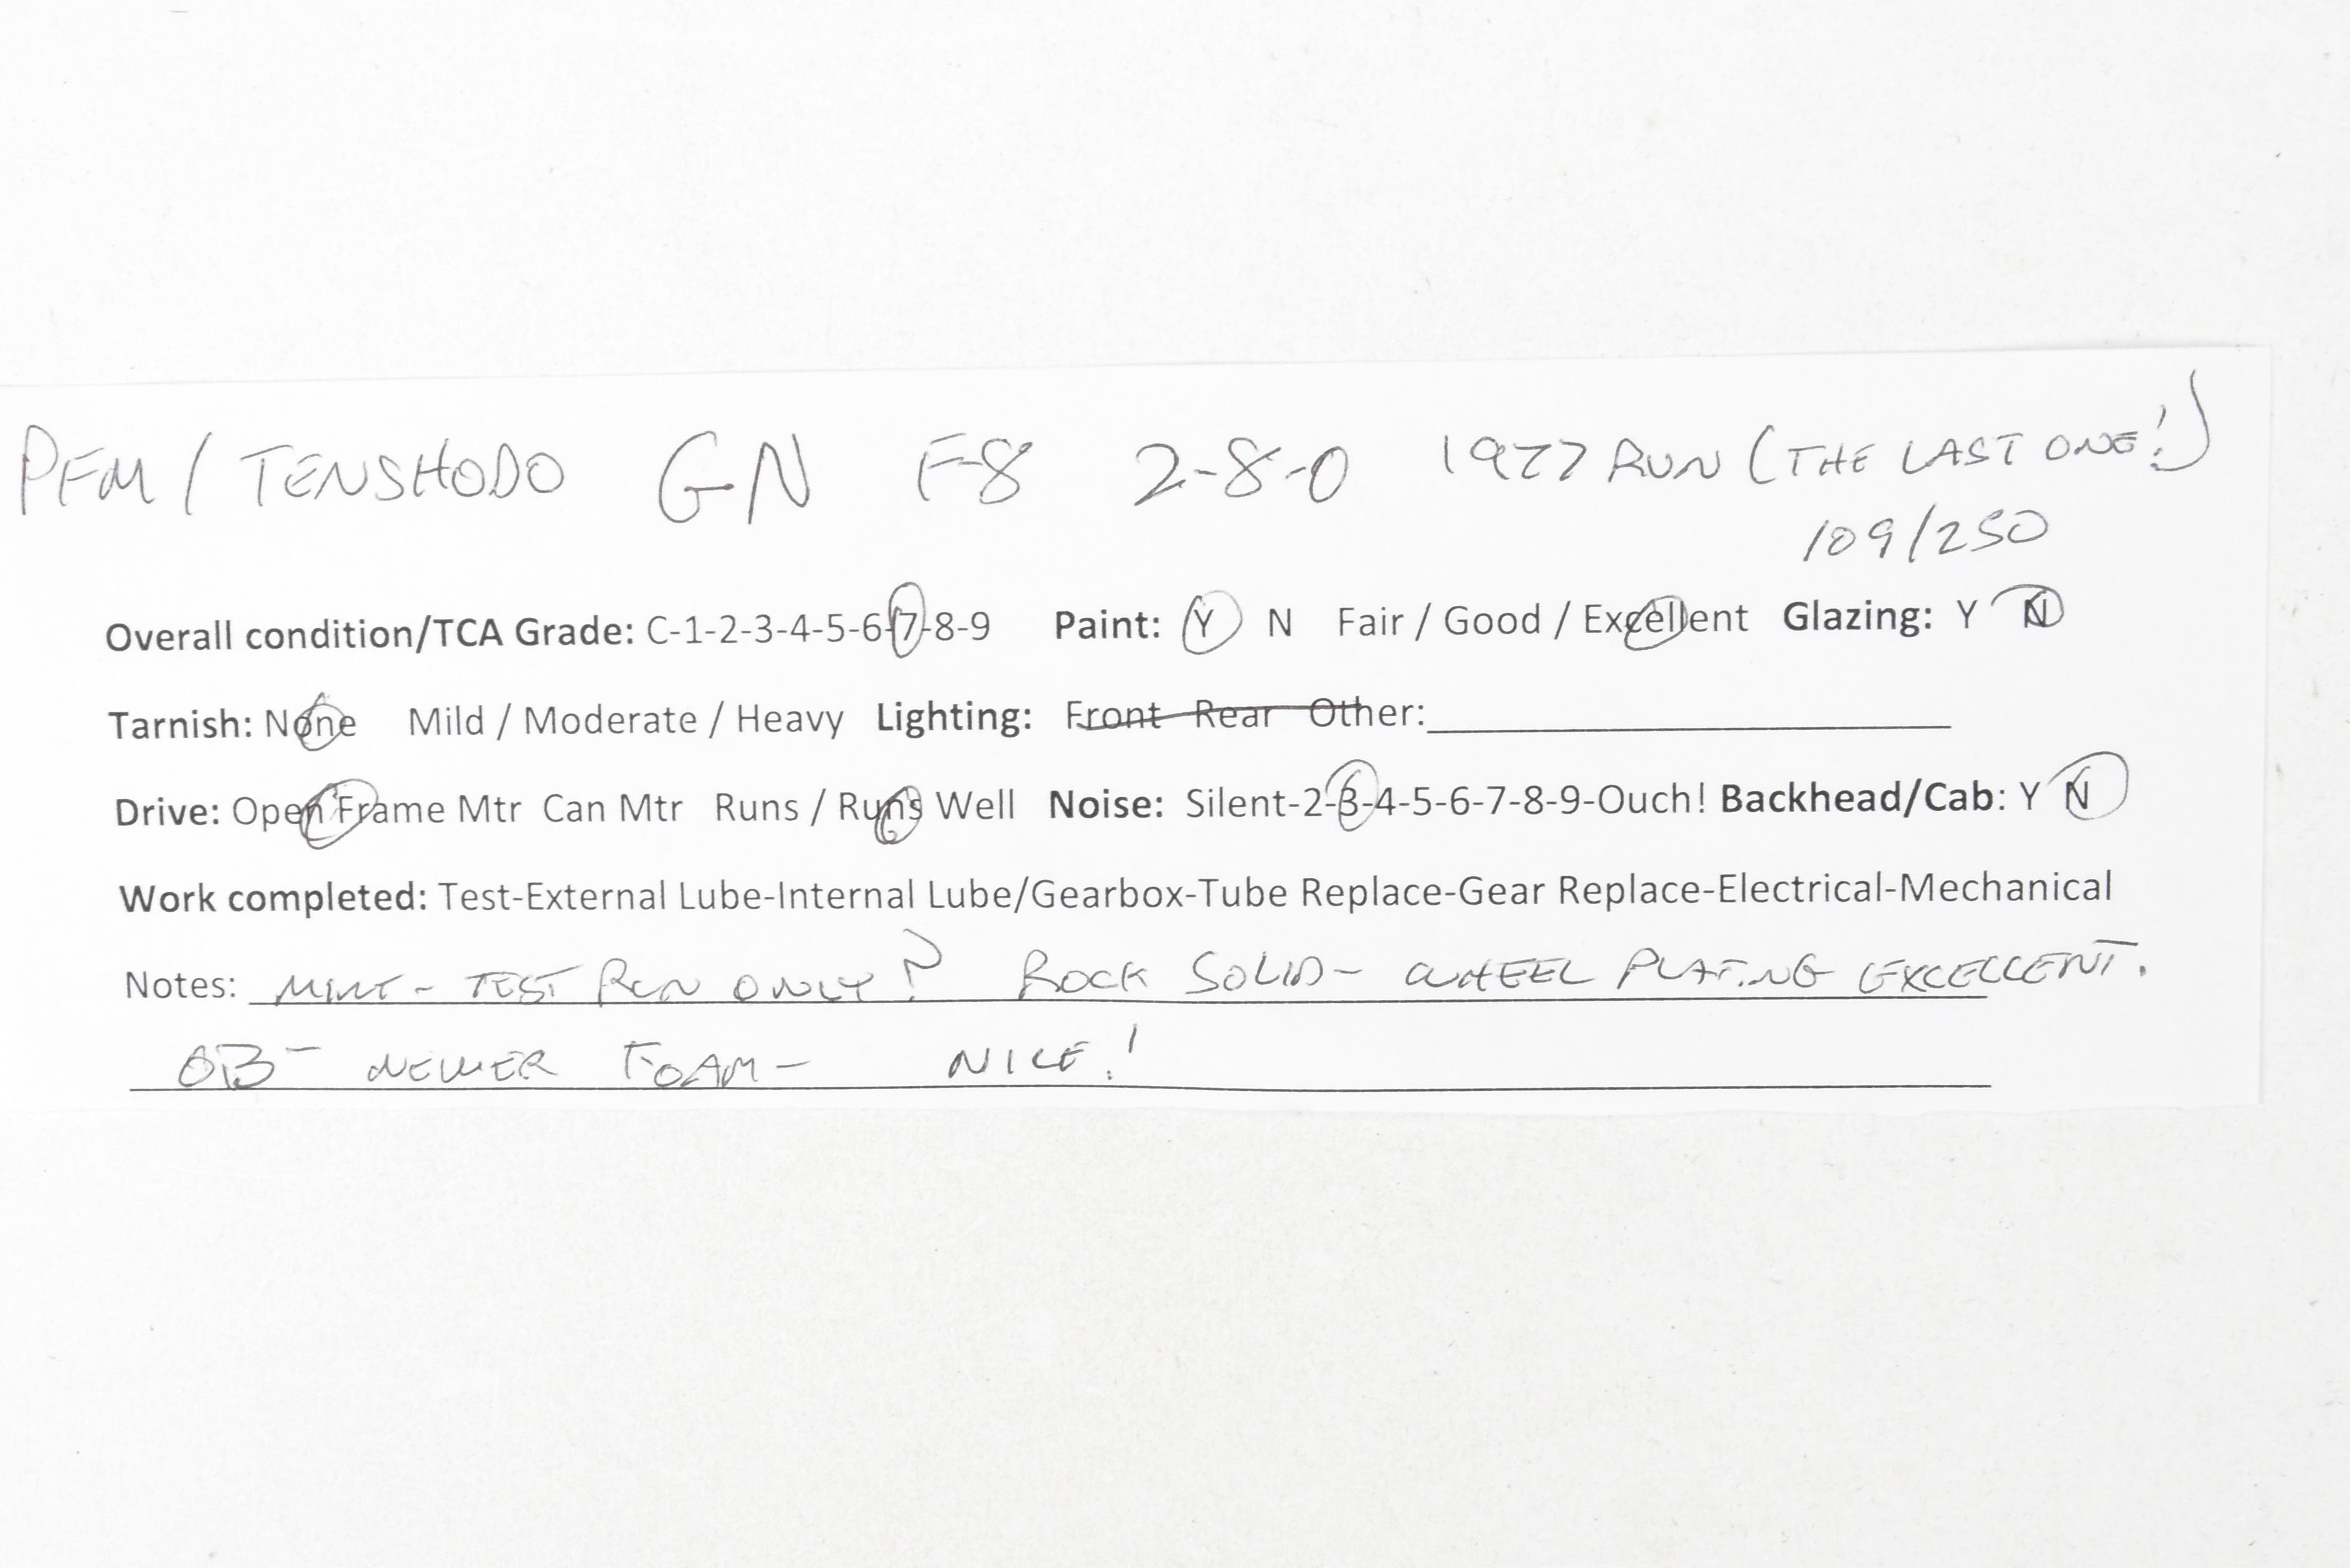 PFM / TENSHODO GN F-8 2-8-0 1977 RUN (THE LAST ONE!)
109/250
Overall condition/TCA Grade: C-1-2-3-4-5-6-7-8-9 Paint: Y N Fair / Good / Excellent Glazing: Y N
Tarnish: None Mild / Moderate / Heavy Lighting: Front Rear Other:
Drive: Open Frame Mtr Can Mtr Runs / Runs Well Noise: Silent-2-3-4-5-6-7-8-9-Ouch! Backhead/Cab: Y N
Work completed: Test-External Lube-Internal Lube/Gearbox-Tube Replace-Gear Replace-Electrical-Mechanical
Notes: MINT - TEST RUN ONLY? ROCK SOLID - WHEEL PLATING EXCELLENT.
OB - NEWER FOAM - NICE!